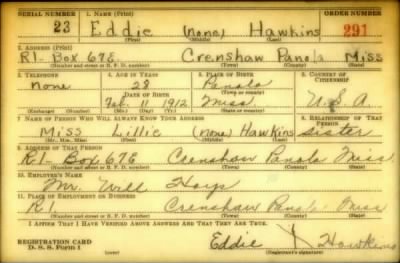 SERIAL NUMBER 1. NAME (Print) ORDER NUMBER
23 Eddie (none) Hawkins 291
(First) (Middle) (Last)
2. ADDRESS (Print)
R1- Box 67E Crenshaw Panola Miss
(Number and street or R. F. D. number) (Town) (County) (State)
3. TELEPHONE 4. AGE IN YEARS 5. PLACE OF BIRTH 6. COUNTRY OF CITIZENSHIP
none 28 Panola
DATE OF BIRTH (Town or county)
Feb. 11 1912 Miss U.S.A.
(Exchange) (Number) (Mo.) (Day) (Yr.) (State or country)
7. NAME OF PERSON WHO WILL ALWAYS KNOW YOUR ADDRESS 8. RELATIONSHIP OF THAT PERSON
Miss Lillie (none) Hawkins Sister
(Mr., Mrs., Miss) (First) (Middle) (Last)
9. ADDRESS OF THAT PERSON
R1- Box 67E Crenshaw Panola Miss.
(Number and street or R. F. D. number) (Town) (County) (State)
10. EMPLOYER'S NAME
Mr. Will Hays
11. PLACE OF EMPLOYMENT OR BUSINESS
R1 Crenshaw Panola Miss
(Number and street or R. F. D. number) (Town) (County) (State)
I AFFIRM THAT I HAVE VERIFIED ABOVE ANSWERS AND THAT THEY ARE TRUE.
REGISTRATION CARD Eddie X Hawkins
D. S. S. Form 1 (over) (Registrant's signature)